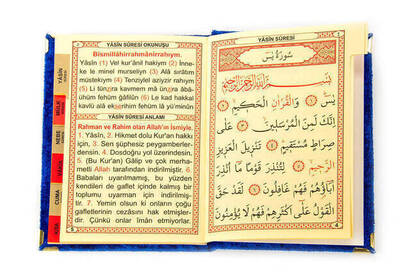 YÂSÎN SÛRESİ OKUNUŞU
Bismillâhirrahmânirrahıym.
Yâsîn (1) Vel kur'ânil hakiym (2) İnne-
ke le minel murseliyn (3) Alâ sırâtım
müstekıym (4) Tenziylel aziyzir rahıym
(5) Li tünzira kavmem mâ ünzira âbâ-
ühüm fehüm ğâfilûn (6) Le kad hakkal
kavlü alâ ekserihim fehüm lâ yü'minûn
YÂSÎN SÛRESİ ANLAMI
Rahman ve Rahim olan Allah'ın İsmiyle.
1. Yâsin, 2. Hikmet dolu Kur'an hakkı
için, 3. Sen şüphesiz peygamberler-
densin. 4. Dosdoğru yol üzerindesin.
5. (Bu Kur'an) Gâlip ve çok merha-
metli Allah tarafından indirilmiştir. 6.
Babaları uyarılmamış, bu yüzden
kendileri de gaflet içinde kalmış bir
toplumu uyarman için indirilmiş-
tir. 7. Yemin olsun ki onların çoğu
gafletlerinin cezâsını hak etmişler-
dir. Çünkü onlar îman etmiyorlar.
5
YÂSÎN
MÜLK
NEBE
CUMA
YÂSÎN SÛRESİ
سُورَةُ يٰسٓ
بِسْمِ اللهِ الرَّحْمٰنِ الرَّحِيمِ
يٰسٓ ﴿١﴾ وَالْقُرْاٰنِ الْحَكِيمِ ﴿٢﴾
اِنَّكَ لَمِنَ الْمُرْسَلِينَ ﴿٣﴾ عَلٰى
صِرَاطٍ مُسْتَقِيمٍ ﴿٤﴾ تَنْزِيلَ الْعَزِيزِ
الرَّحِيمِ ﴿٥﴾ لِتُنْذِرَ قَوْمًا مَا اُنْذِرَ
اٰبَاؤُهُمْ فَهُمْ غَافِلُونَ ﴿٦﴾ لَقَدْ حَقَّ
الْقَوْلُ عَلٰى اَكْثَرِهِمْ فَهُمْ لَا يُؤْمِنُونَ
4